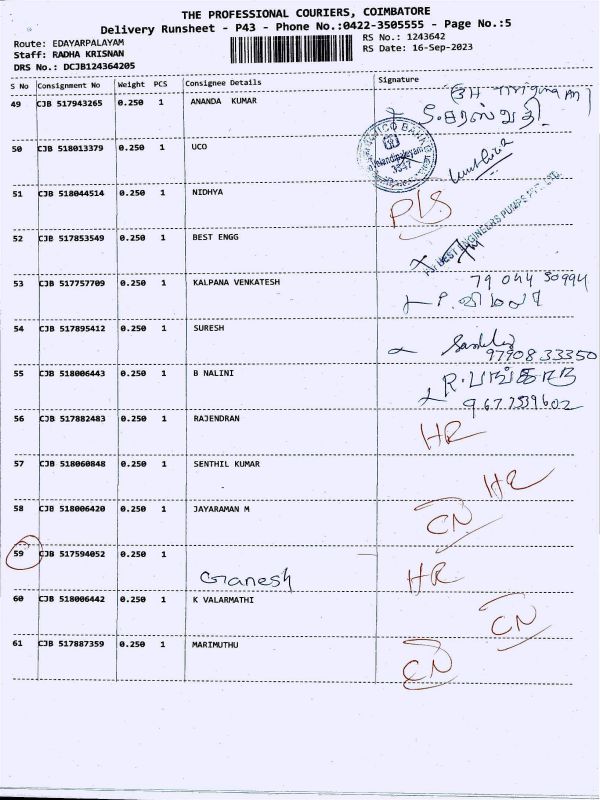 THE PROFESSIONAL COURIERS, COIMBATORE
Delivery Runsheet - P43 - Phone No.:0422-3505555 - Page No.:5
Route: EDAYARPALAYAM RS No.: 1243642
Staff: RADHA KRISNAN RS Date: 16-Sep-2023
DRS No.: DCJB124364205
S No Consignment No Weight PCS Consignee Details Signature
49 CJB 517943265 0.250 1 ANANDA KUMAR
சரஸ்வதி
50 CJB 518013379 0.250 1 UCO
51 CJB 518044514 0.250 1 NIDHYA P/S
52 CJB 517853549 0.250 1 BEST ENGG BEST ENGINEERS PUMPS PVT. LTD.
53 CJB 517757709 0.250 1 KALPANA VENKATESH 79 044 50994
P. விமலா
54 CJB 517895412 0.250 1 SURESH
97908 33350
55 CJB 518006443 0.250 1 B NALINI
56 CJB 517882483 0.250 1 RAJENDRAN HR
57 CJB 518060848 0.250 1 SENTHIL KUMAR HR
58 CJB 518006420 0.250 1 JAYARAMAN M CN
59 CJB 517594052 0.250 1 Ganesh HR
60 CJB 518006442 0.250 1 K VALARMATHI CN
61 CJB 517887359 0.250 1 MARIMUTHU CN